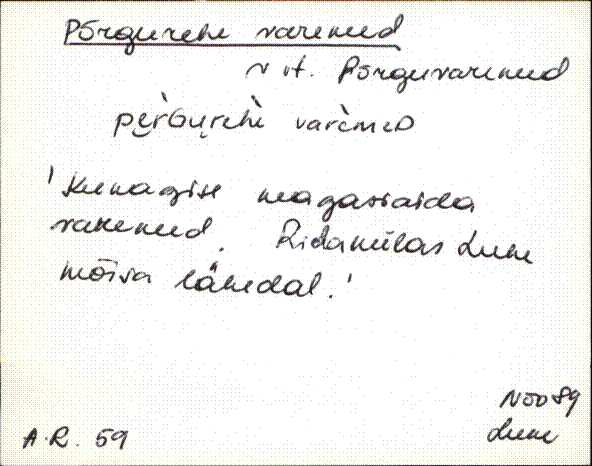 Põrgurehe varemed
v vt. Põrguvaremed
pèrGurehè varèmeD
'Kunagise magasiaida
varemed. Ridamülas Luke
mõisa lähedal.'
Nõo 89
A.R. 59
Luke